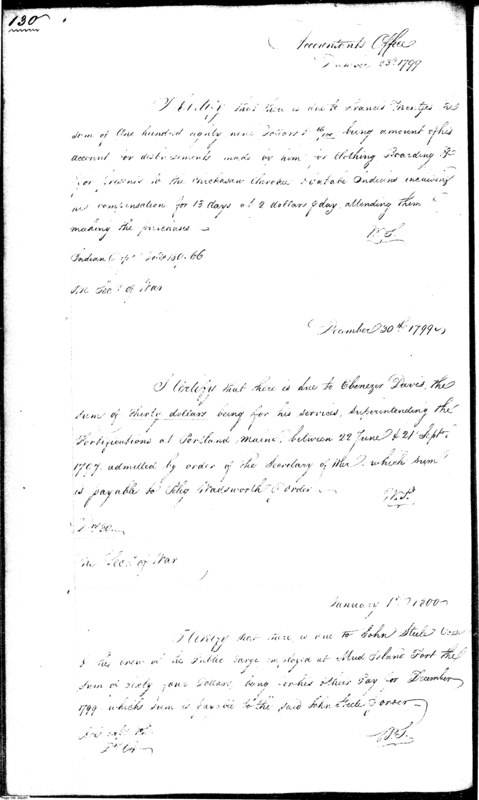 130
Accountants Office
23d 1799
I Certify that there is due to Francis the
sum of One hundred eighty nine Dollars & 66/100 being amount of his
account for disbursements made by him for Clothing Boarding &c
for presents to the Chickasaw Cherokee Indians
his compensation for 13 days at 2 dollars p day, attending them
making the purchases
W. S.
Indian Dolls 189.66
The Secy of War
December 30th 1799
I Certify that there is due to Ebenezer Davis, the
sum of thirty dollars being for his services, superintending the
Fortifications at Portland Maine, between 22 June & 21 Sept
1797 admitted by order of the Secretary of War, which sum
is payable to Peleg Wadsworth or order
W. S.
30
The Secy of War
January 1st 1800
I Certify that there is due to John Steele
& his crew of the Public Barge employed at Mud Island Fort the
sum of sixty four Dollars, being for his & their Pay for December
1799 which sum is payable to the said John Steele or order
W. S.
64